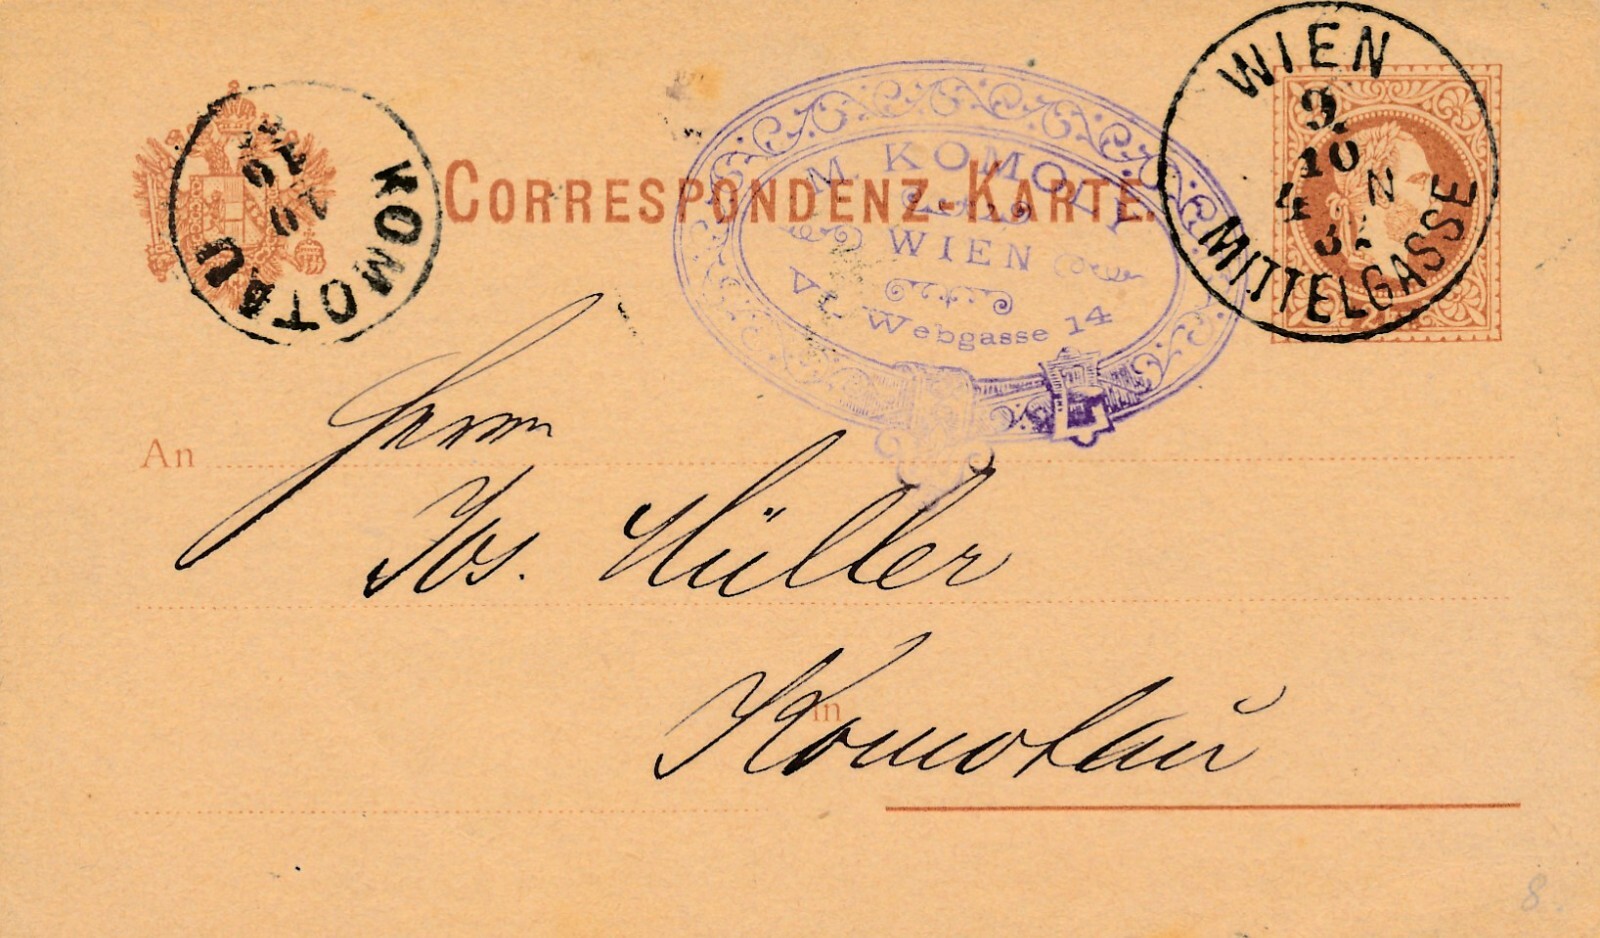 CORRESPONDENZ-KARTE.
KOMOTAU
10
10
M. KOMOLY
WIEN
VI. Webgasse 14
WIEN
9.
10
4 N
MITTELGASSE
An
Herrn
Jos. Müller
in
Komotau
8.